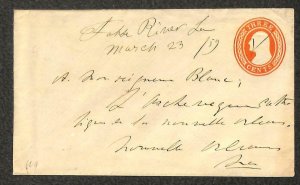 THREE
False River La
March 23 /59
CENTS
A Monseigneur Blanc,
L'Archevèque Catho
lique de la nouvelle orleans.
nouvelle orleans